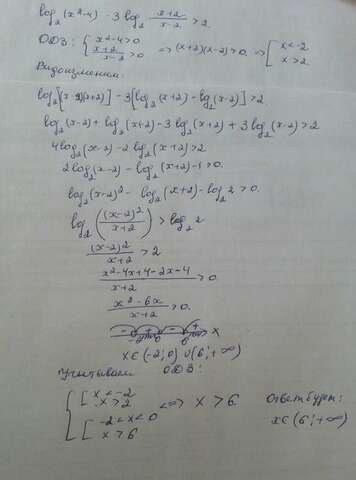 log₂(x²-4) - 3 log₂ (x+2)/(x-2) > 2.
ОДЗ: { x²-4>0 ; (x+2)/(x-2)>0 => (x+2)(x-2)>0. => [ x<-2 ; x>2
Видоизменим:
log₂[(x-2)(x+2)] - 3[log₂(x+2) - log₂(x-2)] > 2
log₂(x-2) + log₂(x+2) - 3 log₂(x+2) + 3 log₂(x-2) > 2
4 log₂(x-2) - 2 log₂(x+2) > 2.
2 log₂(x-2) - log₂(x+2) - 1 > 0.
log₂(x-2)² - log₂(x+2) - log₂ 2 > 0.
log₂((x-2)²/(x+2)) > log₂ 2
(x-2)²/(x+2) > 2
(x²-4x+4-2x-4)/(x+2) > 0.
(x²-6x)/(x+2) > 0.
- + - +
-2 0 6 x
x∈(-2;0) ∪ (6;+∞)
Учитываем ОДЗ:
{ [ x<-2 ; x>2 ; [ -2<x<0 ; x>6 <=> x>6
Ответ будет:
x∈(6;+∞)